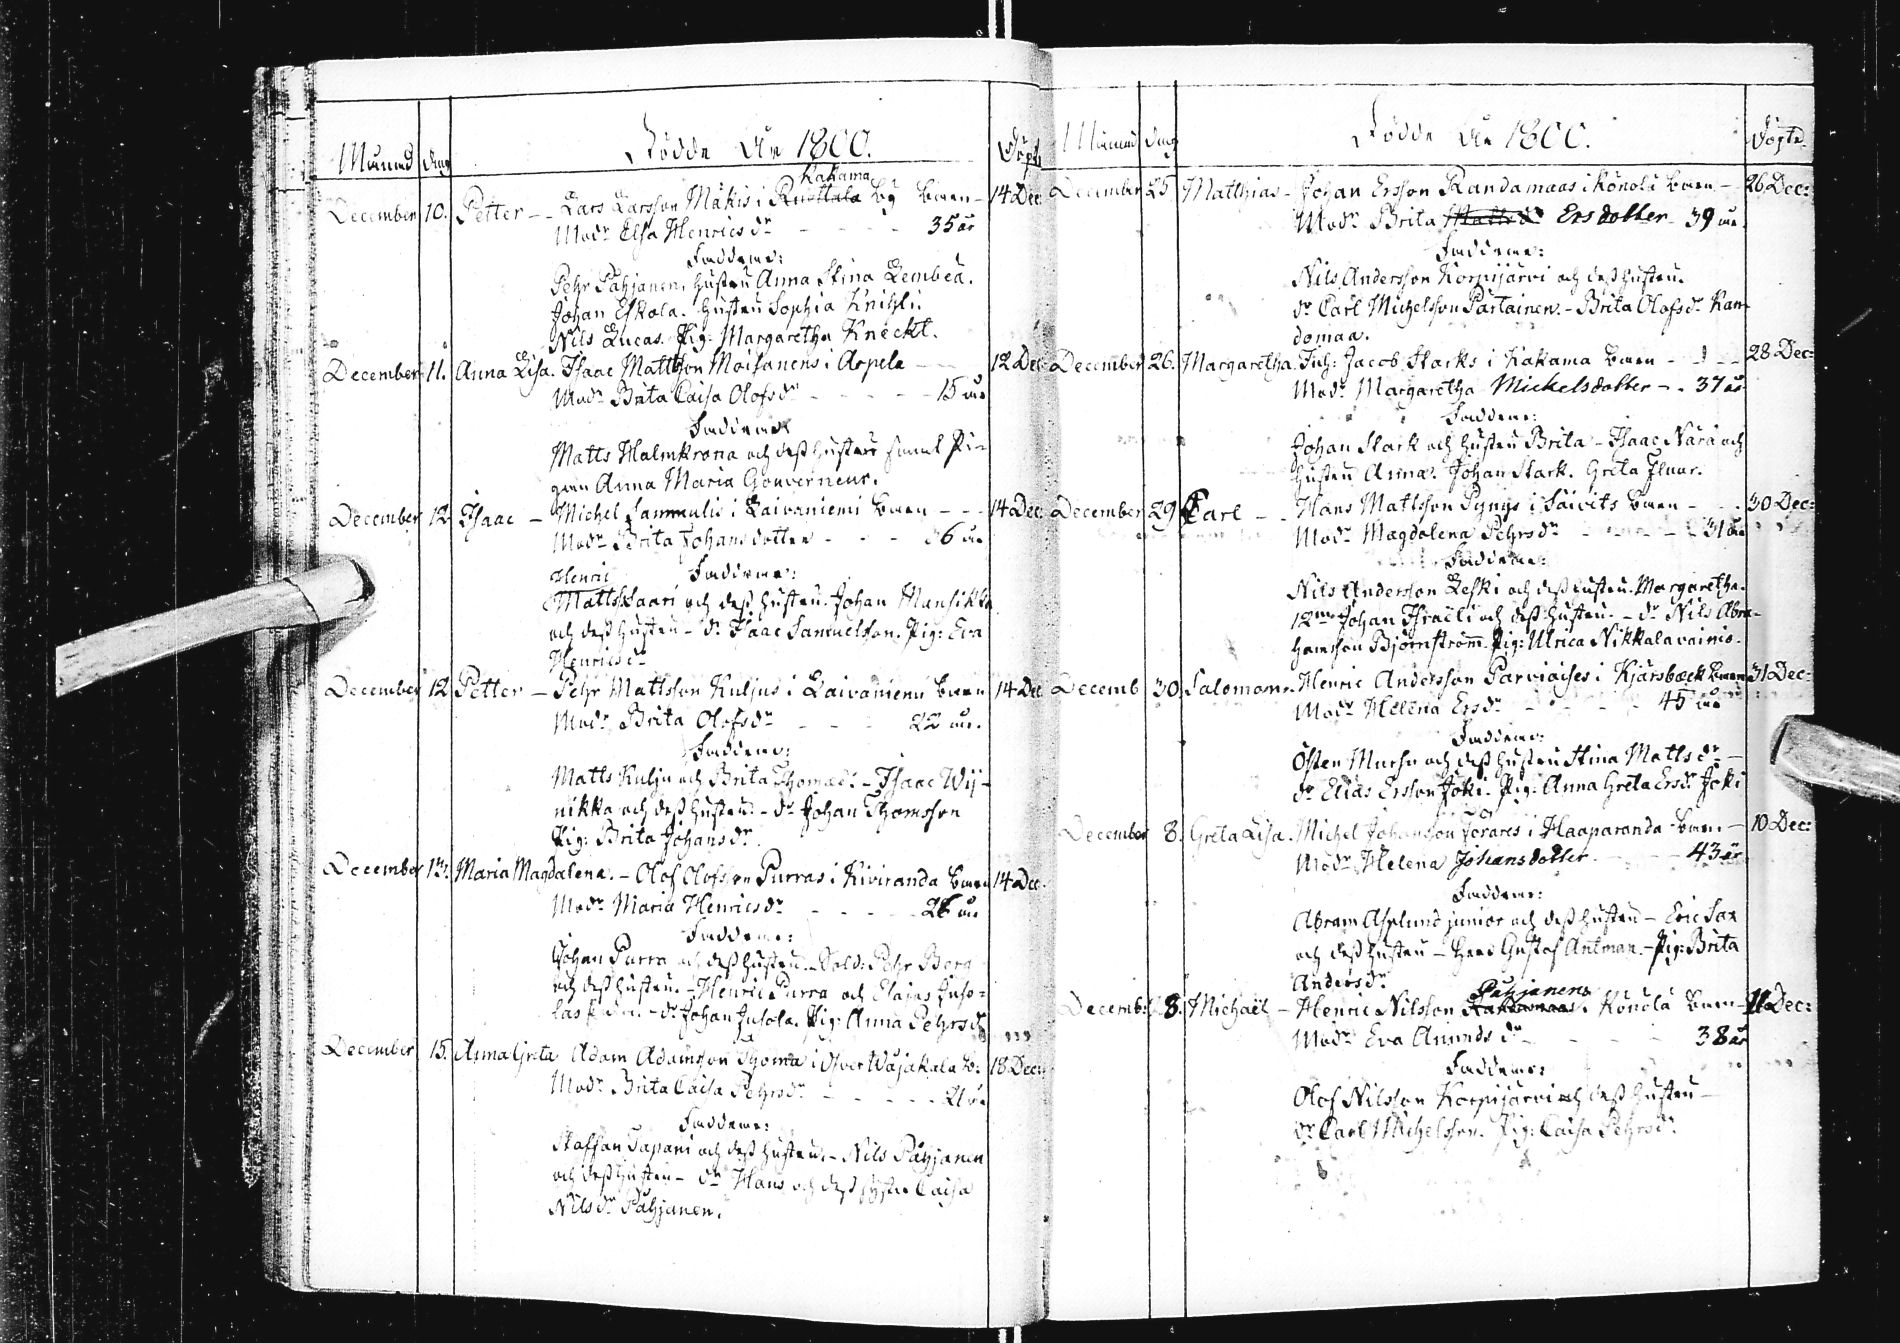 Månad Dag Födde År 1800. Döpte
Kakama
December 10. Petter - Lars Larsson Mäkis i Ruottala By Barn - 14 Dec:
Modr Elsa Henricsdr - - - 35 år
Faddrar:
Pehr Pahjanen, hustru Anna Stina Lembeä.
Johan Eskola. hustru Sophia Knihti.
Nils Lucas. Pig: Margaretha Kneckt.
December 11. Anna Lisa. Isaac Mattsson Moisanens i Arpela - 12 Dec
Modr Brita Caisa Olofsdr - - - - 15 år
Faddrar
Matts Malmkrona och dess hustru samt Pi-
gan Anna Maria Gouverneur.
December 12 Isaac - Michel i Laivaniemi Barn - - 14 Dec:
Modr Brita Johansdotter - - - 36 år
Henric Faddrar:
Matts Saari och dess hustru. Johan Mansikka
och dess hustru - dr Isaac Samuelsson. Pig: Eva
Henricsdr
December 12 Petter - Pehr Mattsson Kuljus i Laivaniemi Barn 14 Dec
Modr Brita Olofsdr - - - 22 år.
Faddrar:
Matts Kulju och Brita Thomasd: - Isaac Wij-
nikka och dess hustru. - dr Johan Thomsson
Pig: Brita Johansdr.
December 13. Maria Magdalena. - Olof Olofsson Purras i Kiviranda Barn 14 Dec.
Modr Maria Henricsdr - - - - 26 år
Faddrar:
Johan Purra och dess hustru. - Sold: Pehr Berg
och dess hustru. - Henric Purra och Elajas Juso-
las - dr Johan Jusola. Pig: Anna Pehrsdr
December 15. Anna Greta Adam Adamsson Thoma i Öfver Wojakala b: 18 Dec:
Modr Brita Caisa Pehrsdr - - - - 21 år
Faddrar:
Staffan Tapani och dess hustru. - Nils Pahjanen
och dess hustru - dr Hans och dess syster Caisa
Nilsdr Pahjanen.
Månad Dag Födde År 1800. Döpte.
December 25. Matthias - Johan Ersson Kandamaas i Könölä Barn - 26 Dec:
Modr Brita Mattsdr Ersdotter - 39 år.
Faddrar:
Nils Andersson Korpijärvi och dess hustru.
dr Carl Michelsson Partainen. - Brita Olofsdr Kan-
domaa.
December 26. Margaretha. Fisk: Jacob Starks i Kakama Barn - - - 28 Dec:
Modr Margaretha Mickelsdotter - . 37 år
Faddrar:
Johan Stark och hustru Brita - Isaac Närä och
hustru Anna. Johan Stark. Greta
December 29 Carl - - Hans Mattsson Pyngs i Säivits Barn - - - 30 Dec:
Modr Magdalena Pehrsdr - - - - 31 år
Faddrar:
Nils Andersson Leski och dess hustru Margaretha.
12man Johan Israeli och dess hustru. - dr Nils Abra-
hamsson Björnström. Pig: Ulrica Nikkalavainio.
Decemb 30. Salomon. Henric Andersson Parviaises i Kjärsbäck Barn 31 Dec:
Modr Helena Ersdr - - - - 45 år
Faddrar:
Östen Mursu och dess hustru Stina Mattsdr -
dr Elias Ersson Joki. Pig: Anna Greta Ersdr Joki
December 8. Greta Lisa. Michel Johansson i Haaparanda Barn - 10 Dec:
Modr Helena Johansdotter. - - - 43 år
Faddrar:
Abram Asplund junior och dess hustru - Eric Sax
och dess hustru - Herr Gustaf Antman. - Pig: Brita
Andersdr
Pahjanens
Decemb: 8. Michaël - Henric Nilsson Kandamaas i Könölä Barn - 11 Dec:
Modr Eva Amundsdr - - - - 38 år
Faddrar:
Olof Nilsson Korpijärvi och dess hustru -
dr Carl Michelsson. Pig: Caisa Pehrsdr